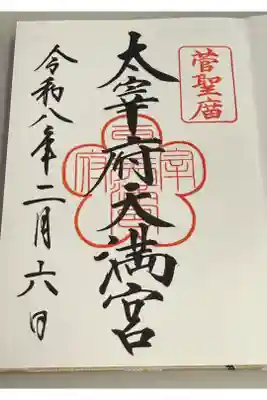 菅聖廟
太宰府天満宮
令和八年二月六日